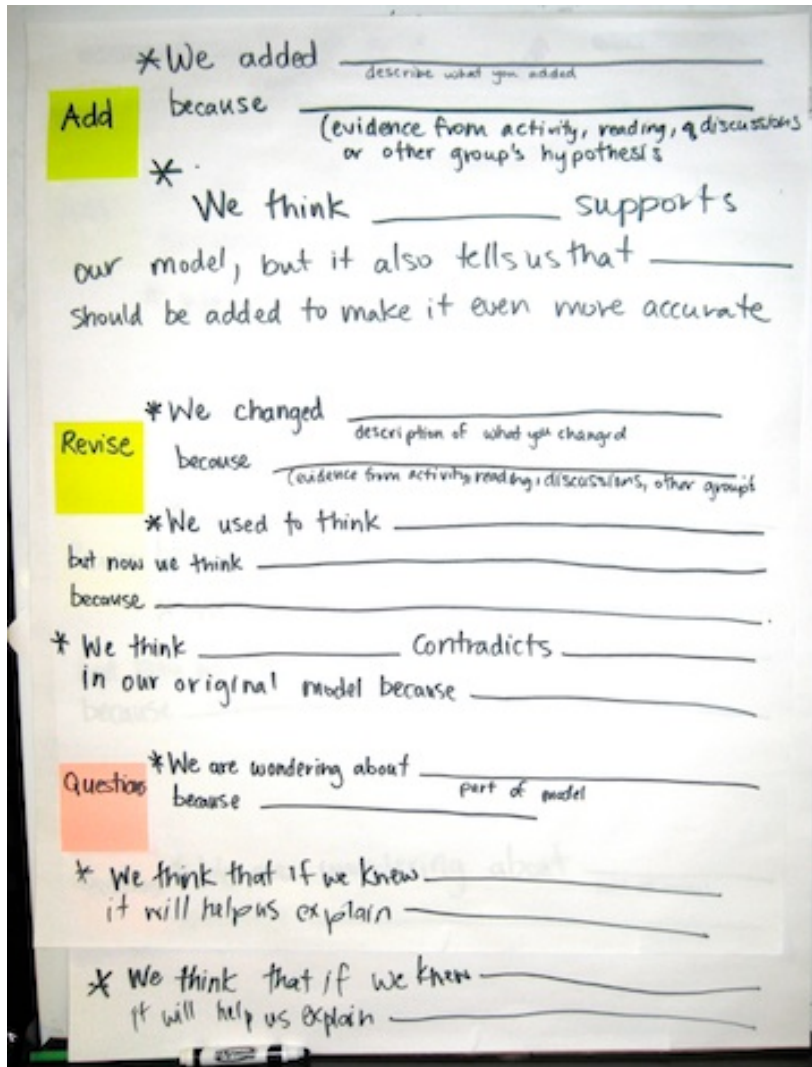 *We added ____________
describe what you added
Add
because ____________
(evidence from activity, reading, & discussions
or other group's hypothesis
*
We think ________ supports
our model, but it also tells us that ________
should be added to make it even more accurate
Revise
*We changed ____________
description of what you changed
because ____________
(evidence from activity, reading, discussions, other group's
*We used to think ____________
but now we think ____________
because ____________
* We think ________ Contradicts ________
in our original model because ________
Questions
*We are wondering about ____________
part of model
because ____________
* We think that if we knew ____________
it will help us explain ____________
* We think that if we knew ____________
it will help us explain ____________